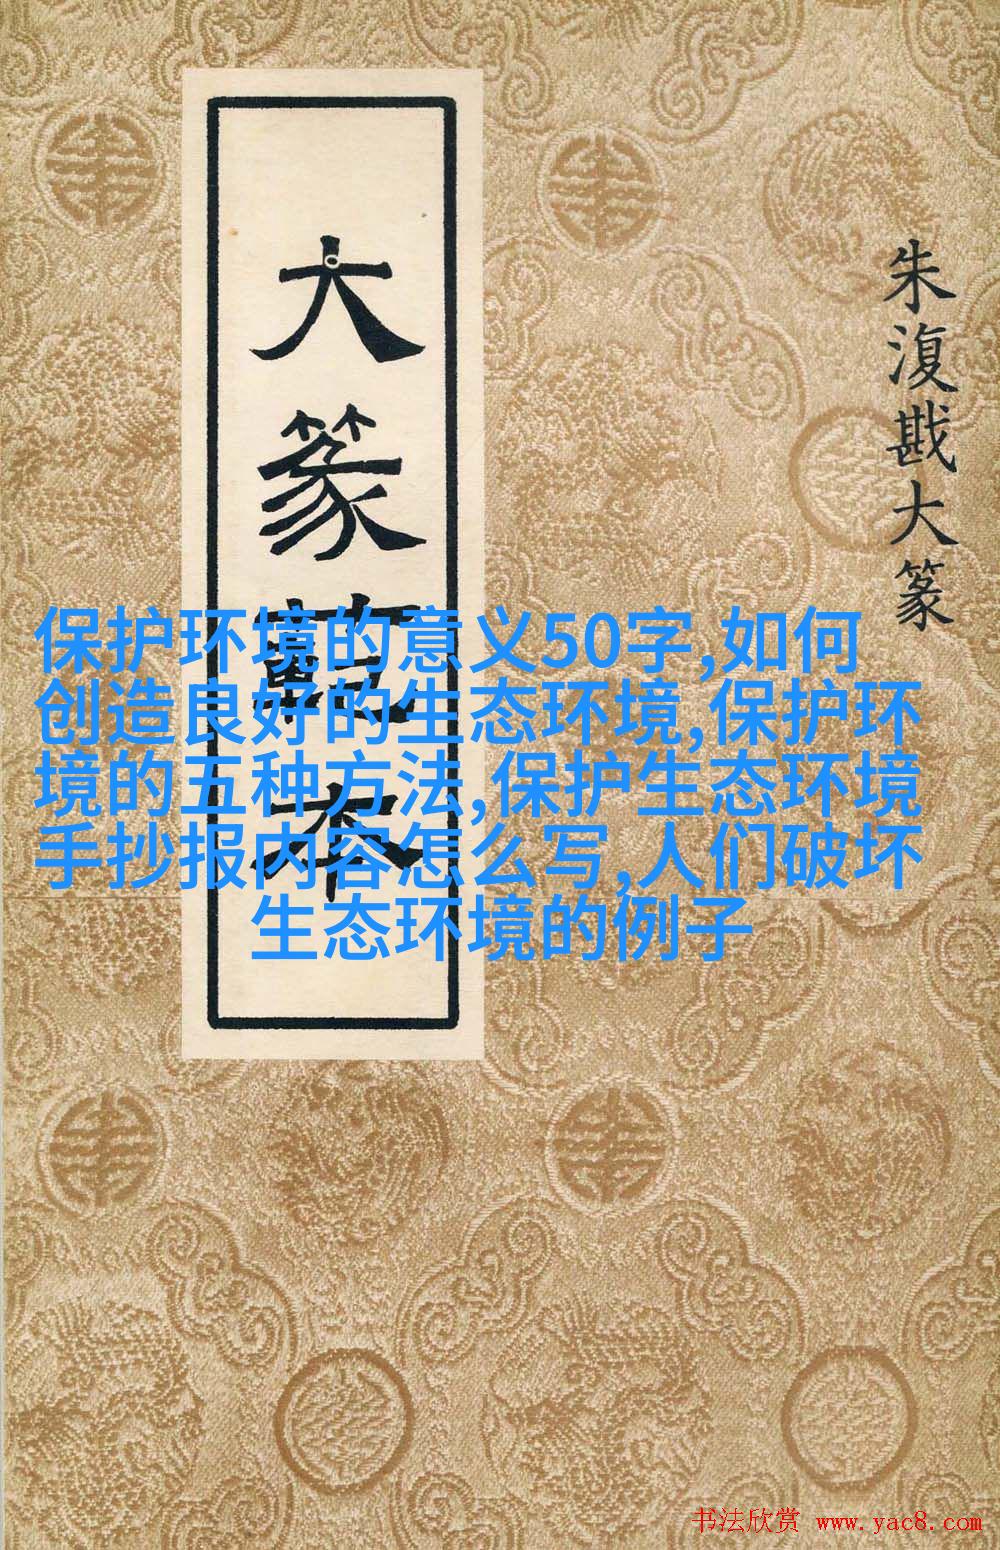 大篆範本
朱復戡大篆
保护环境的意义50字,如何
创造良好的生态环境,保护环
境的五种方法,保护生态环境
手抄报内容怎么写,人们破坏
生态环境的例子
书法欣赏 www.yac8.com